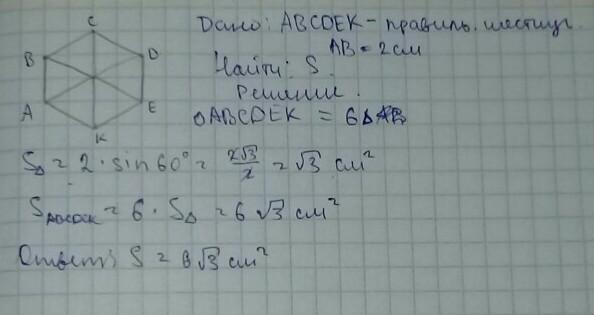 Дано: ABCDEK - правиль. шестиуг.
AB = 2 см
Найти: S.
Решение.
ABCDEK = 6Δ
C
B
D
A
E
K
S△ = 2 · sin 60° = 2√3/2 = √3 см²
S = 6 · S△ = 6 √3 см²
Ответ: S = 6 √3 см²